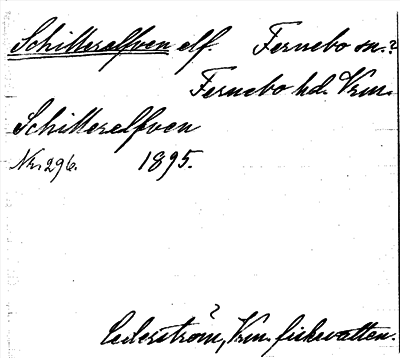 Schitterelfven elf. Fernebo sn.?
Fernebo hd. Vrm.
Schitterelfven
Nr. 296. 1895.
Cederström, Vrm. fiskevatten.